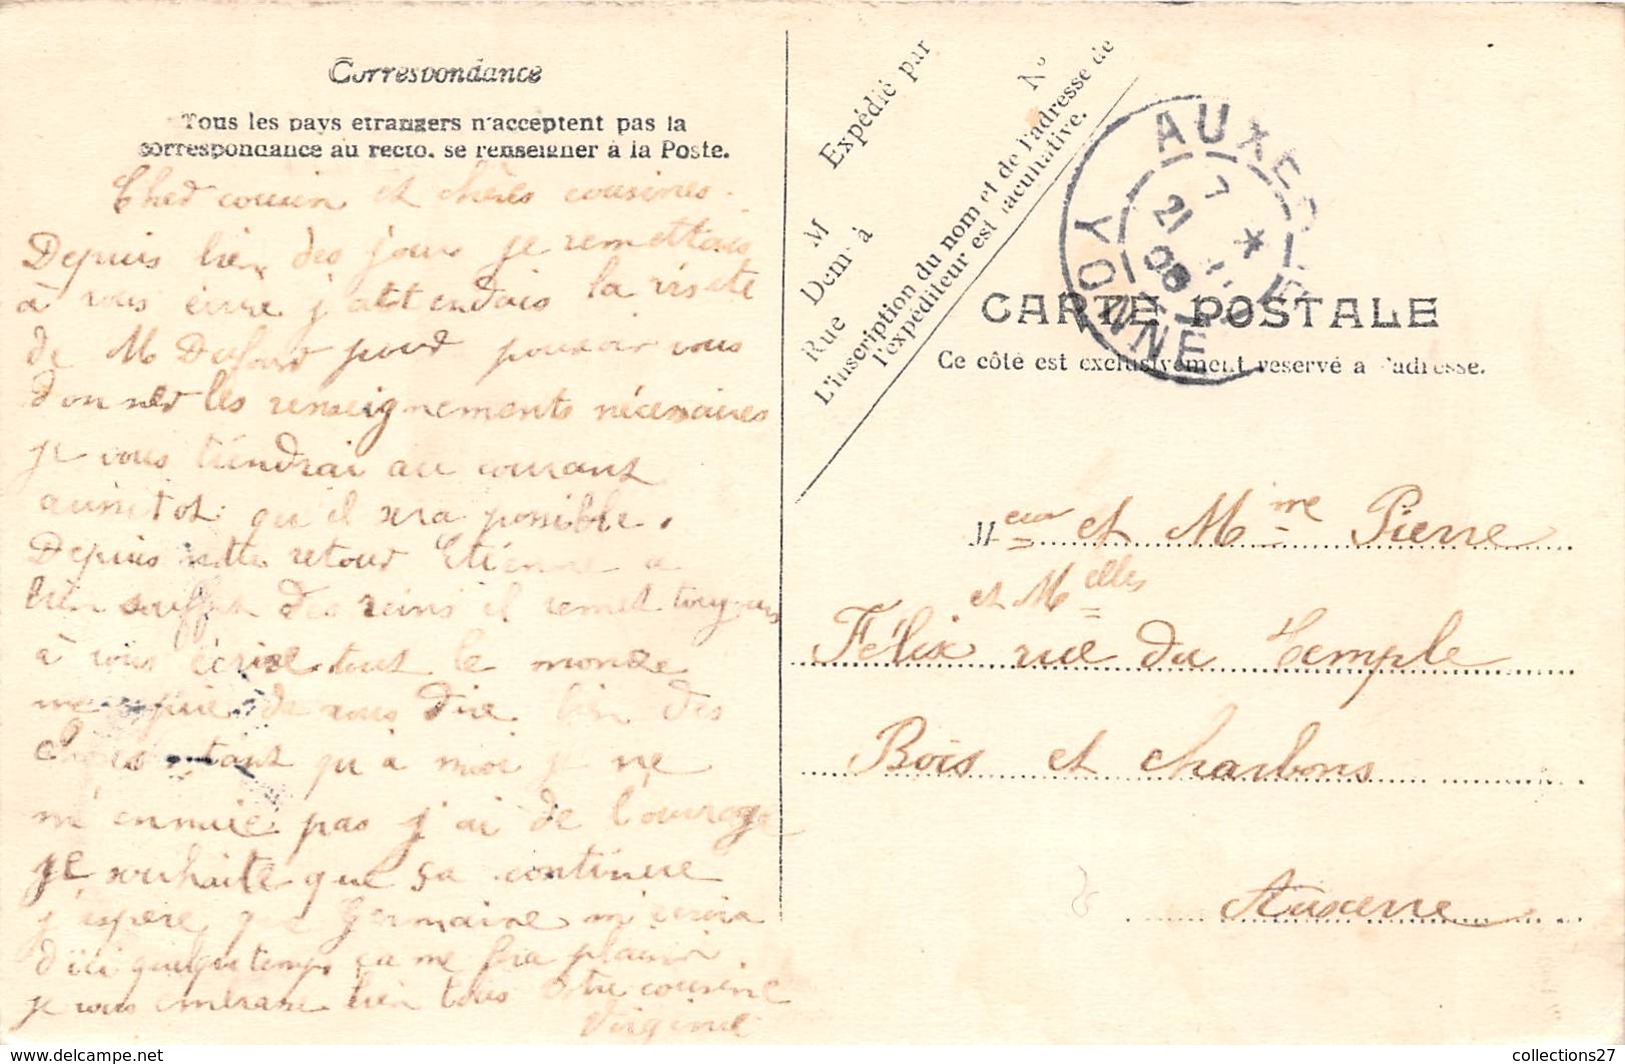 Correspondance
Tous les pays etrangers n'acceptent pas la
correspondance au recto, se renseigner à la Poste.
Cher cousin et chères cousines.
Depuis bien des jours je remettais
à vous écrire j'attendais la visite
de M Dufard pour pouvoir vous
donner les renseignements nécessaires
je vous tiendrai au courant
aussitot qu'il sera possible.
Depuis notre retour Etienne a
bien souffert des reins il remet toujours
à vous écrire tout le monde
me prie de vous dire bien des
choses tant qu'à moi je ne
m'ennuie pas j'ai de l'ouvrage
je souhaite que sa continue
j'espère que Germaine m'écrira
d'ici quelque temps ça me fera plaisir
je vous embrasse bien tous votre cousine
Virginie
Expédié par
M
Rue
Dem^t à
N°
L'inscription du nom et de l'adresse de
l'expéditeur est facultative.
AUXERRE
YONNE
7
21
08
CARTE POSTALE
Ce côté est exclusivement reservé a l'adresse.
M^eur et M^me Pierre
et M^elles
Félix rue du Temple
Bois et charbons
Auxerre
collections27